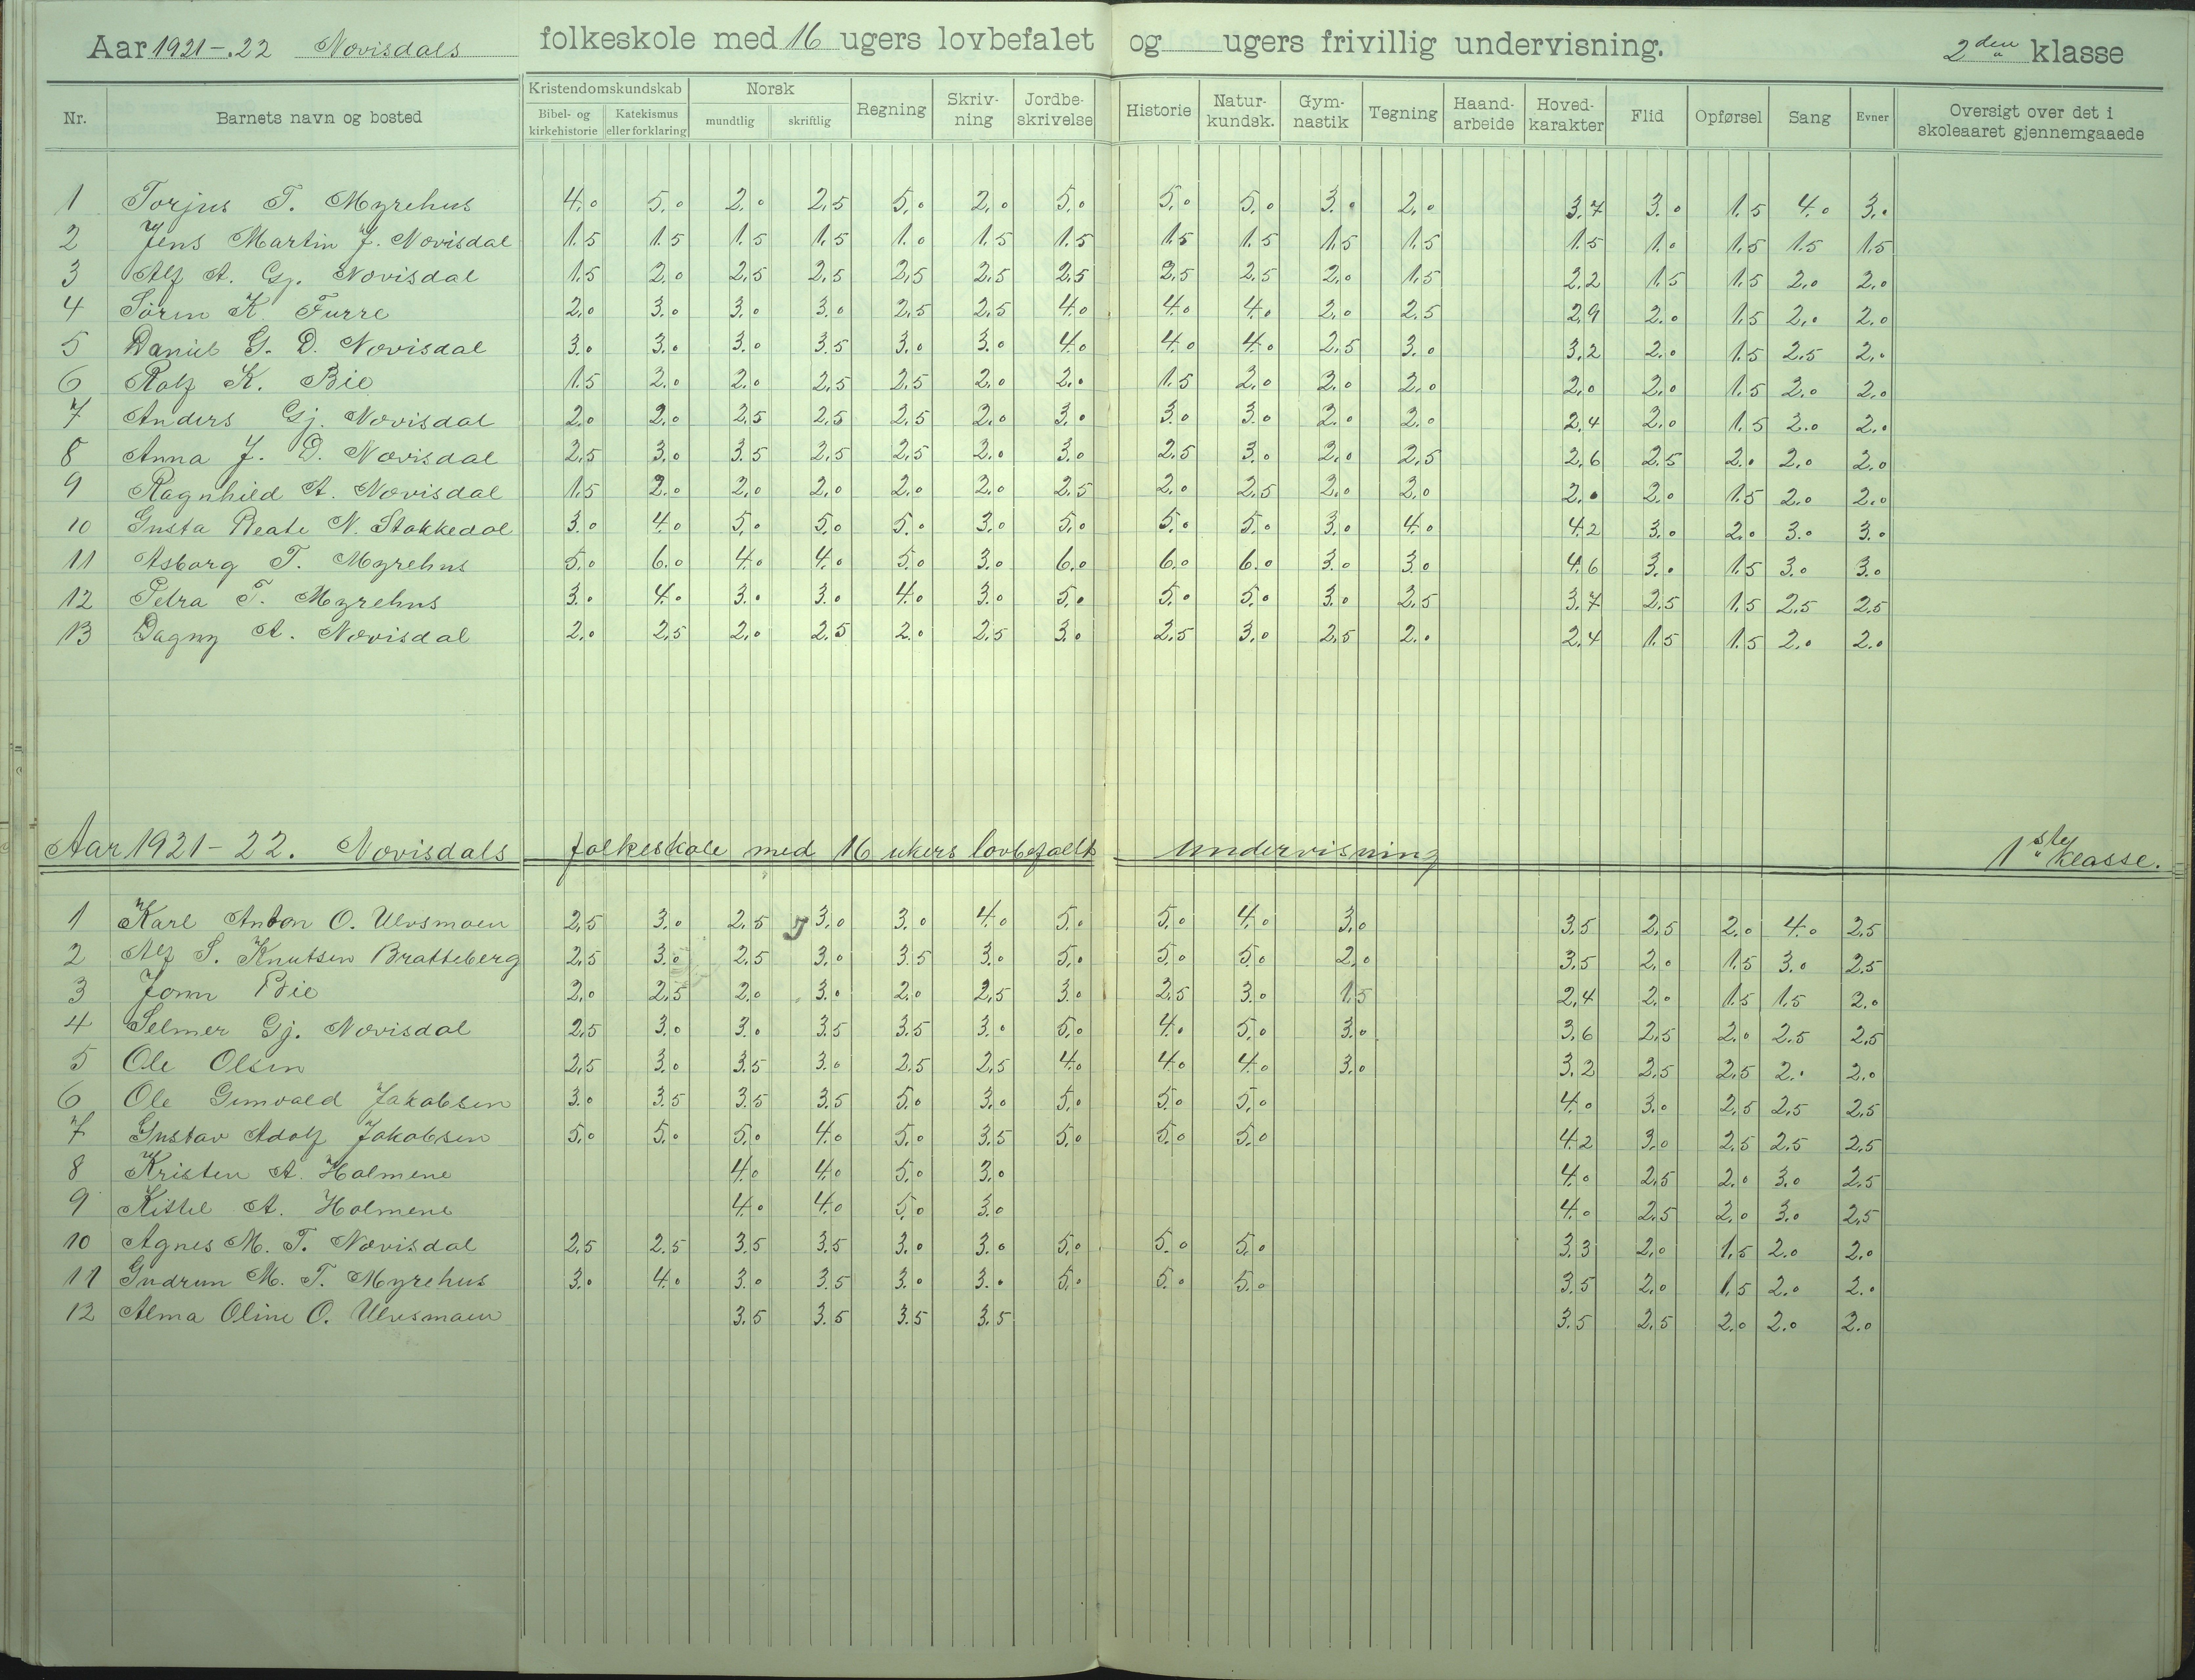 Aar 1921-.22 Novisdals folkeskole med 16 ugers lovbefalet og ugers frivillig undervisning. 2den klasse
Nr. Barnets navn og bosted Kristendomskundskab Bibel- og kirkehistorie Katekismus eller forklaring Norsk mundtlig skriftlig Regning Skriv-ning Jordbe-skrivelse Historie Natur-kundsk. Gym-nastik Tegning Haand-arbeide Hoved-karakter Flid Opførsel Sang Evner Oversigt over det i skoleaaret gjennemgaaede
1 Torjus T. Myrehus 4.0 5.0 2.0 2,5 5.0 2,0 5.0 5.0 5.0 3.0 2,0 3.7 3.0 1.5 4.0 3.0
2 Jens Martin J. Novisdal 1.5 1.5 1.5 1.5 1.0 1.5 1.5 1.5 1.5 1.5 1.5 1.5 1.0 1.5 1.5 1.5
3 Alf A. Gj. Novisdal 1.5 2.0 2,5 2,5 2,5 2,5 2,5 2,5 2,5 2,0 1.5 2.2 1.5 1.5 2.0 2.0
4 Sörin K. Furre 2,0 3.0 3.0 3.0 2,5 2,5 4.0 4.0 4.0 2,0 2.5 2,9 2.0 1.5 2,0 2.0
5 Daniel G. D. Novisdal 3.0 3.0 3.0 3.5 3.0 3.0 4.0 4.0 4.0 2,5 3.0 3,2 2.0 1.5 2.5 2.0
6 Rolf K. Bie 1.5 2.0 2.0 2,5 2,5 2,0 2.0 1.5 2.0 2.0 2.0 2,0 2,0 1.5 2.0 2.0
7 Anders Gj. Novisdal 2.0 2.0 2,5 2,5 2,5 2,0 3.0 3.0 3.0 2.0 2.0 2,4 2,0 1.5 2.0 2.0
8 Anna J. D. Novisdal 2,5 3.0 3.5 2,5 2,5 2.0 3.0 2.5 3.0 2,0 2,5 2,6 2.5 2.0 2.0 2.0
9 Ragnhild A. Novisdal 1.5 2.0 2,0 2,0 2,0 2.0 2.5 2.0 2,5 2,0 2,0 2.0 2.0 1.5 2.0 2.0
10 Gusta Beate N. Stokkedal 3.0 4.0 5.0 5.0 5.0 3.0 5.0 5.0 5.0 3.0 4.0 4.2 3.0 2.0 3.0 3.0
11 Asborg T. Myrehus 5.0 6.0 4.0 4.0 5.0 3.0 6.0 6.0 6.0 3.0 3.0 4.6 3.0 1.5 3.0 3.0
12 Petra T. Myrehus 3.0 4.0 3.0 3.0 4.0 3.0 5.0 5.0 5.0 3.0 2.5 3.7 2.5 1.5 2,5 2.5
13 Dagny A. Novisdal 2.0 2,5 2,0 2.5 2.0 2,5 3.0 2.5 3.0 2,5 2.0 2,4 1.5 1.5 2.0 2.0
Aar 1921-22. Novisdals folkeskole med 16 ukers lovbefalt undervisning 1ste klasse.
1 Karl Anton O. Ulvsmoen 2,5 3.0 2,5 3.0 3.0 4.0 5.0 5.0 4.0 3.0 3.5 2.5 2.0 4.0 2.5
2 Alf S. Knutsen Bratteberg 2,5 3.0 2.5 3.0 3.5 3.0 5.0 5.0 5.0 2,0 3.5 2.0 1.5 3.0 2.5
3 Jonn Bie 2,0 2,5 2,0 3.0 2,0 2,5 3.0 2.5 3.0 1.5 2,4 2.0 1.5 1.5 2.0
4 Selmer Gj. Novisdal 2,5 3.0 3.0 3.5 3.5 3.0 5.0 4.0 5.0 3.0 3.6 2.5 2.0 2.5 2.5
5 Ole Olsen 2,5 3.0 3.5 3.0 2.5 2,5 4.0 4.0 4.0 3.0 3.2 2.5 2.5 2.0 2.0
6 Ole Gunvald Jakobsen 3.0 3.5 3.5 3.5 5.0 3.0 5.0 5.0 5.0 4.0 3.0 2.5 2,5 2.5
7 Gustav Adolf Jakobsen 5.0 5.0 5.0 4.0 5.0 3.5 5.0 5.0 5.0 4.2 3.0 2.5 2.5 2.5
8 Kristen A. Holmene 4.0 4.0 5.0 3.0 4.0 2.5 2.0 3.0 2.5
9 Kittil A. Holmene 4.0 4.0 5.0 3.0 4.0 2.5 2.0 3.0 2.5
10 Agnes M. T. Novisdal 2,5 2.5 3.5 3.5 3.0 3.0 5.0 5.0 5.0 3.3 2.0 1.5 2.0 2.0
11 Gudrun M. T. Myrehus 3.0 4.0 3.0 3.5 3.0 3.0 5.0 5.0 5.0 3.5 2.0 1.5 2.0 2.0
12 Alma Oline O. Ulvsmoen 3.5 3.5 3.5 3.5 3.5 2.5 2.0 2.0 2.0